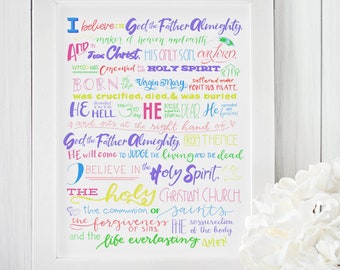 I believe in God the Father Almighty,
maker of heaven and earth.
AND in Jesus Christ, HIS ONLY SON, OUR LORD,
WHO WAS Conceived by the HOLY SPIRIT
BORN OF THE Virgin Mary, suffered under PONTIUS PILATE,
was crucified, died, & was buried
HE descended INTO HELL the 3rd day HE arose again from the DEAD. HE ascended into heaven
and sits at the right hand of
God the Father Almighty. FROM THENCE
HE will come to JUDGE the living and the dead
I BELIEVE IN THE Holy Spirit,
THE holy CHRISTIAN CHURCH,
the communion OF saints,
the forgiveness OF SINS THE resurrection of the body,
and the life everlasting AMEN